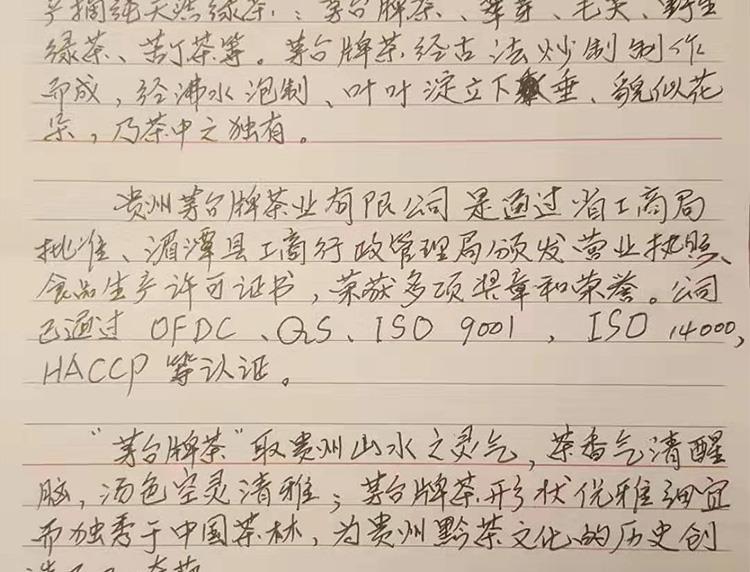 产摘纯天然绿茶：茅台牌茶、翠芽、毛尖、野生
绿茶、苦丁茶等。茅台牌茶经古法炒制制作
而成，经沸水泡制、叶叶淀立下垂、貌似花
朵，乃茶中之独有。
贵州茅台牌茶业有限公司是通过省工商局
批准、湄潭县工商行政管理局颁发营业执照、
食品生产许可证书，荣获多项奖章和荣誉。公司
已通过 OFDC、QS、ISO 9001，ISO 14000，
HACCP 等认证。
“茅台牌茶”取贵州山水之灵气，茶香气清醒
脑，汤色空灵清雅；茅台牌茶形状优雅细宜
而独秀于中国茶林，为贵州黔茶文化的历史创